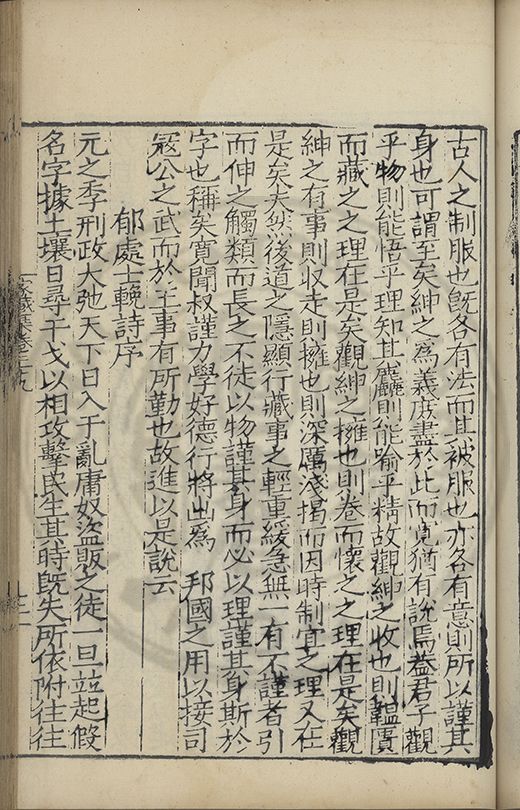 古人之制服也旣各有法而其被服也亦各有意則所以謹其
身也可謂至矣紳之爲義庶盡於此而寛猶有說焉葢君子觀
乎物則能悟乎理知其麤則能喻乎精故觀紳之收也則韞匵
而藏之之理在是矣觀紳之擁也則卷而懷之之理在是矣觀
紳之有事則收走則擁也則深厲淺揭而因時制宜之理又在
是矣夫然後道之隱顯行藏事之輕重緩急無一有不謹者引
而伸之觸類而長之不徒以物謹其身而必以理謹其身斯於
字也稱矣寛聞叔謹力學好德行將出爲 邦國之用以接司
冦公之武而於王事有所勤也故進以是說云
郁處士輓詩序
元之季刑政大弛天下日入于亂庸奴盜販之徒一旦竝起假
名字據土壤日尋干戈以相攻擊民生其時旣失所依附往往